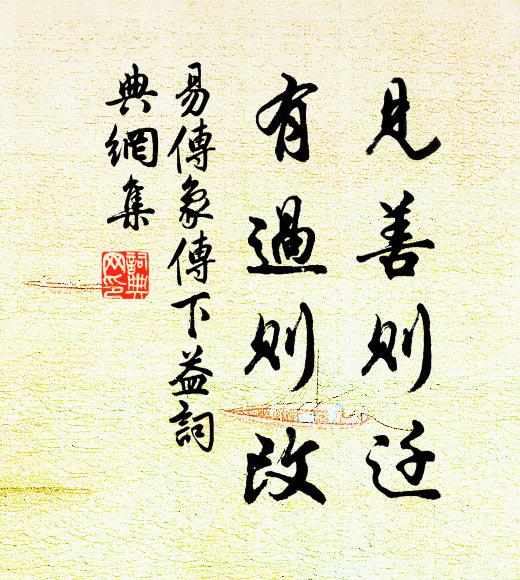 見善則迁
有過則改
易傳象傳下益詞
典網集
詞典网印